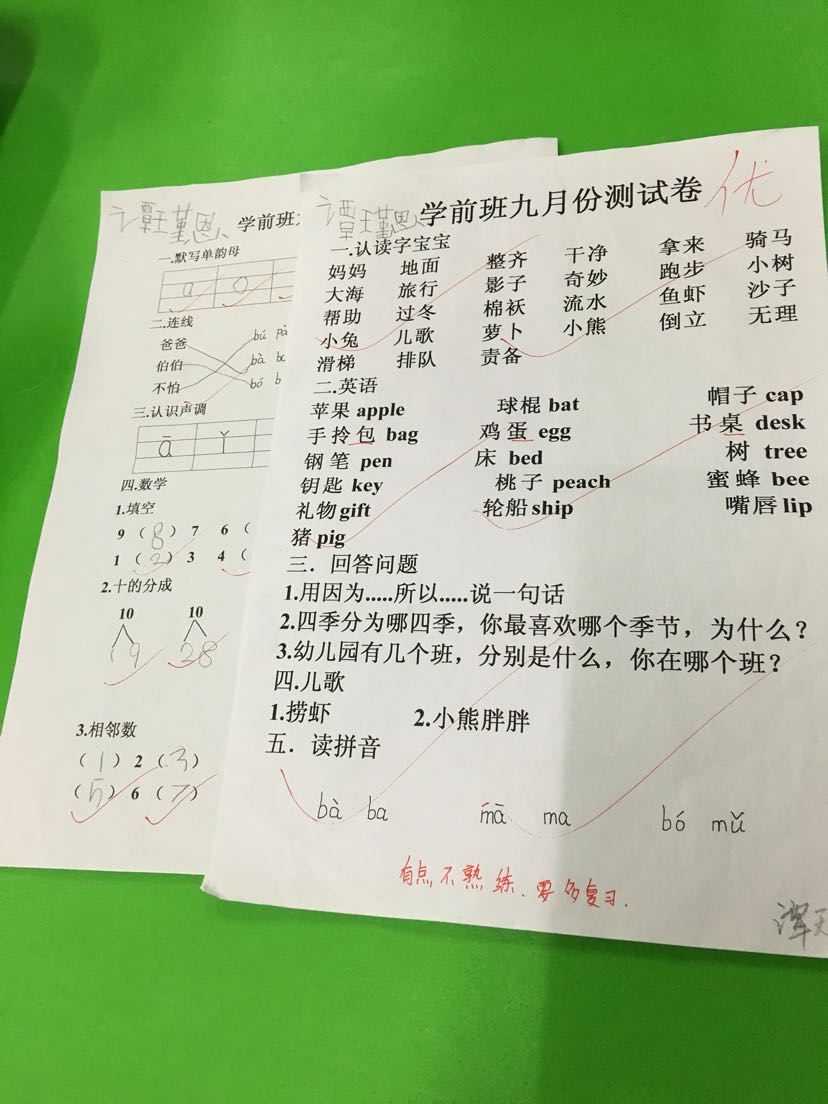 谭王堇恩 学前班九
一.默写单韵母
a o
二.连线
爸爸 bú pà
伯伯 bà
不怕 bó b
三.认识声调
ā ǐ
四.数学
1.填空
9（8）7 6（
1（2）3 4（
2.十的分成
10 10
19 28
3.相邻数
（1）2（3）
（5）6（7）
谭王堇恩 学前班九月份测试卷 优
一.认读字宝宝
妈妈 地面 整齐 干净 拿来 骑马
大海 旅行 影子 奇妙 跑步 小树
帮助 过冬 棉袄 流水 鱼虾 沙子
小兔 儿歌 萝卜 小熊 倒立 无理
滑梯 排队 责备
二.英语
苹果 apple 球棍 bat 帽子 cap
手拎包 bag 鸡蛋 egg 书桌 desk
钢笔 pen 床 bed 树 tree
钥匙 key 桃子 peach 蜜蜂 bee
礼物 gift 轮船 ship 嘴唇 lip
猪 pig
三．回答问题
1.用因为.....所以.....说一句话
2.四季分为哪四季，你最喜欢哪个季节，为什么？
3.幼儿园有几个班，分别是什么，你在哪个班？
四.儿歌
1.捞虾 2.小熊胖胖
五．读拼音
bà ba mā ma bó mǔ
有点不熟练.要多复习.